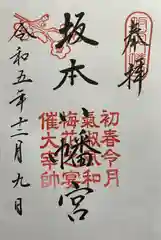 奉拝
坂本八幡宮
令和五年十二月九日
初春令月
氣淑風和
梅花宴
催大宰帥